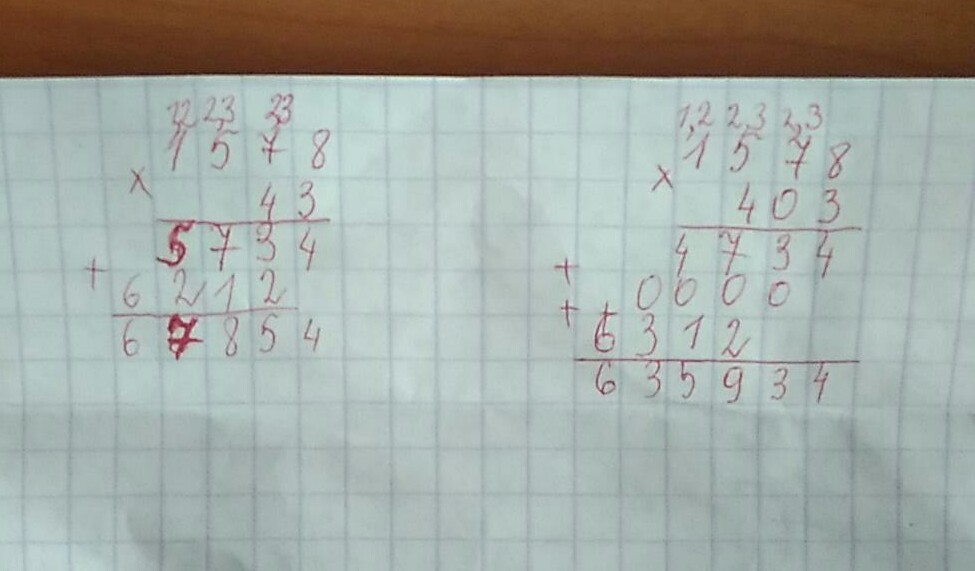 12 23 23
1 5 7 8
×
4 3
5 7 3 4
+
6 2 1 2
6 7 8 5 4
1,2 2,3 2,3
1 5 7 8
×
4 0 3
4 7 3 4
+
0 0 0 0
+ +
6 3 1 2
6 3 5 9 3 4